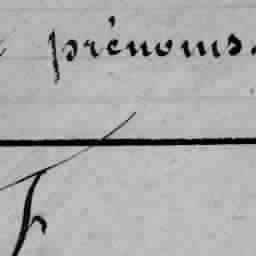 prénoms.